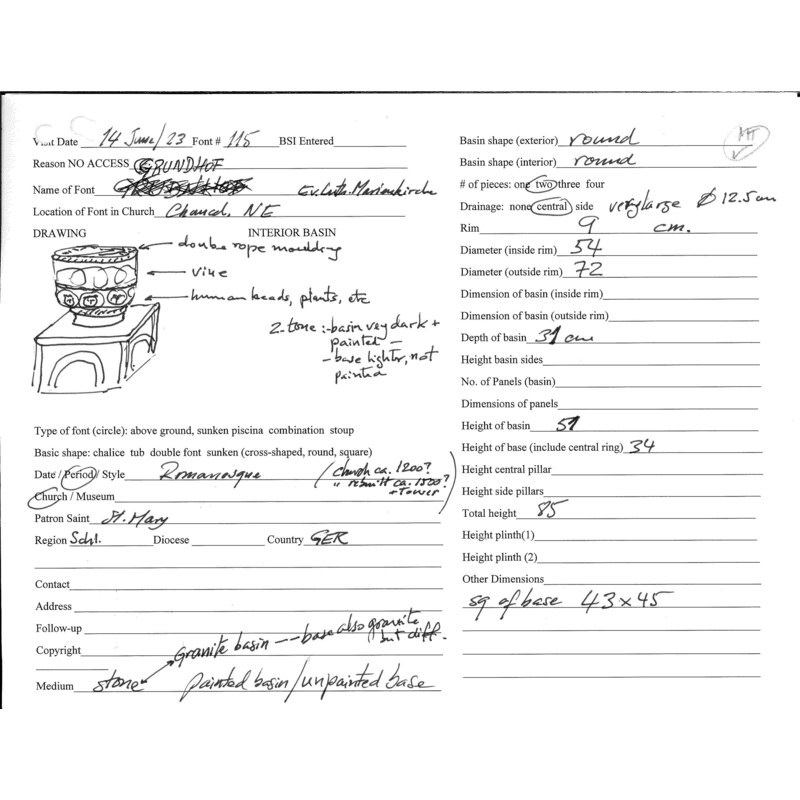 Visit Date 14 June/23 Font # 115 BSI Entered
Reason NO ACCESS GRUNDHOF
Name of Font Ev. Luth. Marienkirche
Location of Font in Church Chancel, NE
DRAWING INTERIOR BASIN
double rope moulding
vine
human heads, plants, etc
2-tone :- basin very dark +
painted —
- base lighter, not
painted
Type of font (circle): above ground, sunken piscina combination stoup
Basic shape: chalice tub double font sunken (cross-shaped, round, square)
Date / Period / Style Romanesque (church ca. 1200?
" rebuilt ca. 1500?
+ tower)
Church / Museum
Patron Saint St. Mary
Region Schl. Diocese Country GER
Contact
Address
Follow-up
Copyright granite basin — base also granite
but diff.
Medium stone painted basin/unpainted base
Basin shape (exterior) round
Basin shape (interior) round
# of pieces: one two three four
Drainage: none central side very large ∅ 12.5 cm
Rim 9 cm.
Diameter (inside rim) 54
Diameter (outside rim) 72
Dimension of basin (inside rim)
Dimension of basin (outside rim)
Depth of basin 31 cm
Height basin sides
No. of Panels (basin)
Dimensions of panels
Height of basin 51
Height of base (include central ring) 34
Height central pillar
Height side pillars
Total height 85
Height plinth(1)
Height plinth (2)
Other Dimensions
sq of base 43 x 45